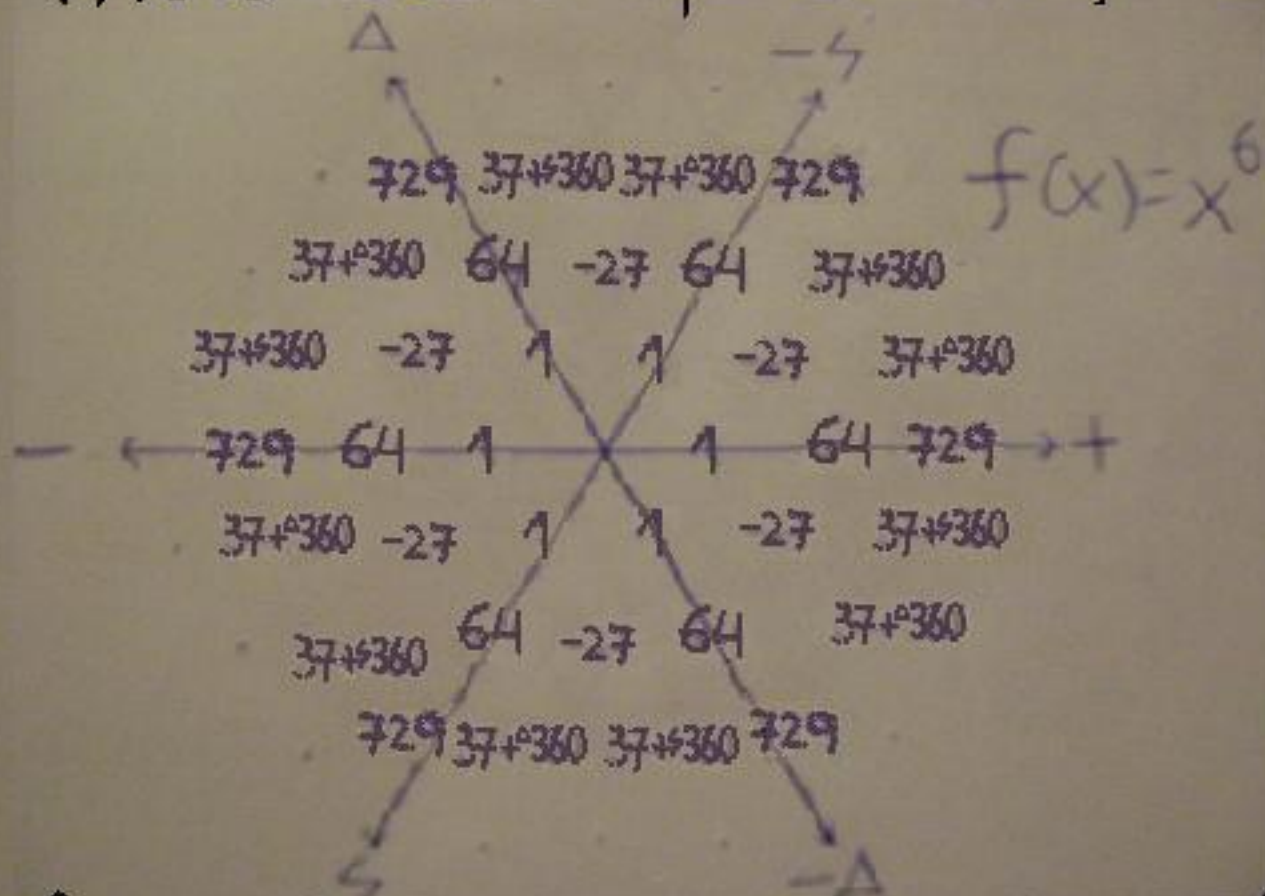 Δ -ϟ
f(x)=x⁶
729 37+ϟ360 37+Δ360 729
37+Δ360 64 -27 64 37+ϟ360
37+ϟ360 -27 1 1 -27 37+Δ360
- 729 64 1 1 64 729 +
37+Δ360 -27 1 1 -27 37+ϟ360
37+ϟ360 64 -27 64 37+Δ360
729 37+Δ360 37+ϟ360 729
ϟ -Δ